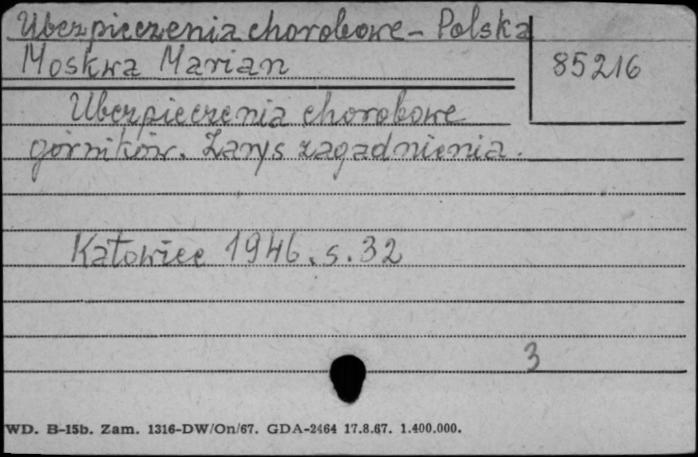 Ubezpieczenia chorobowe - Polska
Moskwa Marian
85216
Ubezpieczenia chorobowe
górników. Zarys zagadnienia.
Katowice 1946. s. 32
3
WD. B-15b. Zam. 1316-DW/On/67. GDA-2464 17.8.67. 1.400.000.